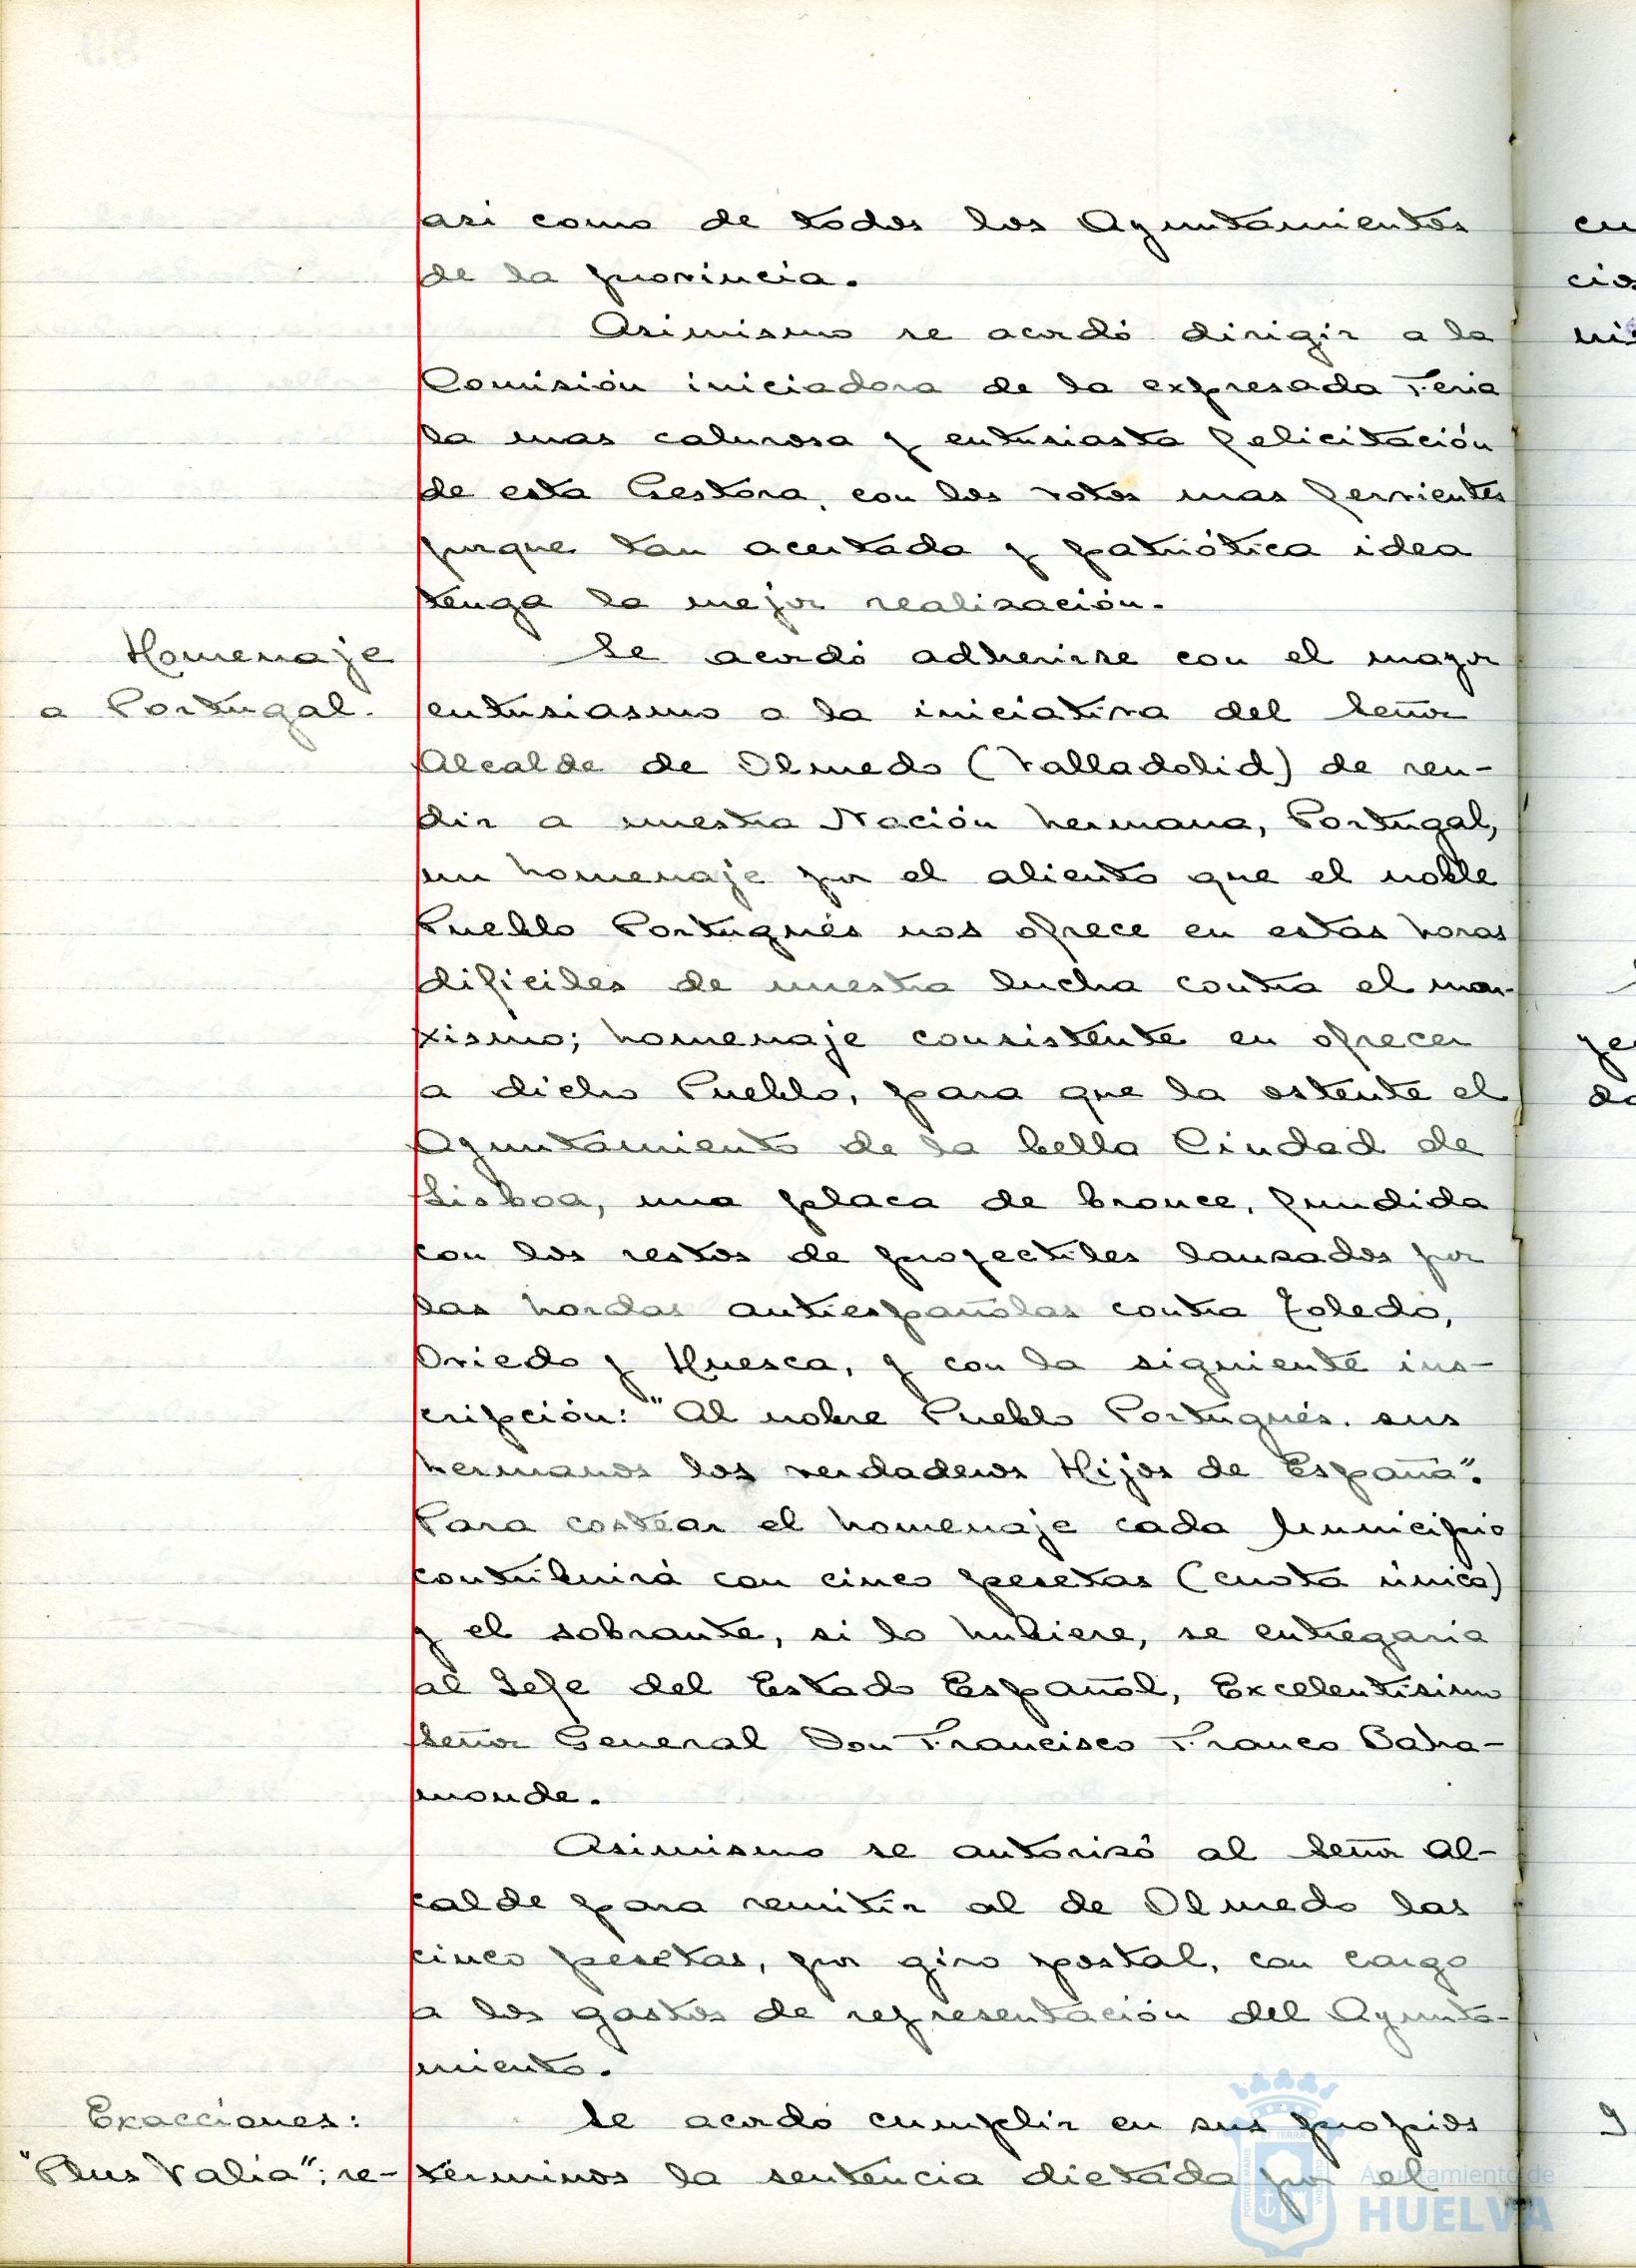 asi como de todos los Ayuntamientos
de la provincia.
Asimismo se acordó dirigir a la
Comisión iniciadora de la expresada Feria
la mas calurosa y entusiasta felicitación
de esta Gestora, con los votos mas fervientes
porque tan acertada y patriótica idea
tenga la mejor realización.
Homenaje
a Portugal.
Se acordó adherirse con el mayor
entusiasmo a la iniciativa del Señor
Alcalde de Olmedo (Valladolid) de ren-
dir a nuestra Nación hermana, Portugal,
un homenaje por el aliento que el noble
Pueblo Portugués nos ofrece en estas horas
dificiles de nuestra lucha contra el mar-
xismo; homenaje consistente en ofrecer
a dicho Pueblo, para que la ostente el
Ayuntamiento de la bella Ciudad de
Lisboa, una placa de bronce, fundida
con los restos de proyectiles lanzados por
las hordas antiespañolas contra Toledo,
Oviedo y Huesca, y con la siguiente ins-
cripción: "Al nobre Pueblo Portugués. sus
hermanos los verdaderos Hijos de España".
Para costear el homenaje cada Municipio
contribuirá con cinco pesetas (cuota única)
y el sobrante, si lo hubiere, se entregaria
al Jefe del Estado Español, Excelentísimo
Señor General Don Francisco Franco Baha-
monde.
Asimismo se autorizó al Señor Al-
calde para remitir al de Olmedo las
cinco pesetas, por giro postal, con cargo
a los gastos de representación del Ayunta-
miento.
Exacciones:
"Plus Valia": re-
Se acordó cumplir en sus propios
términos la sentencia dictada por el
Ayuntamiento de
HUELVA